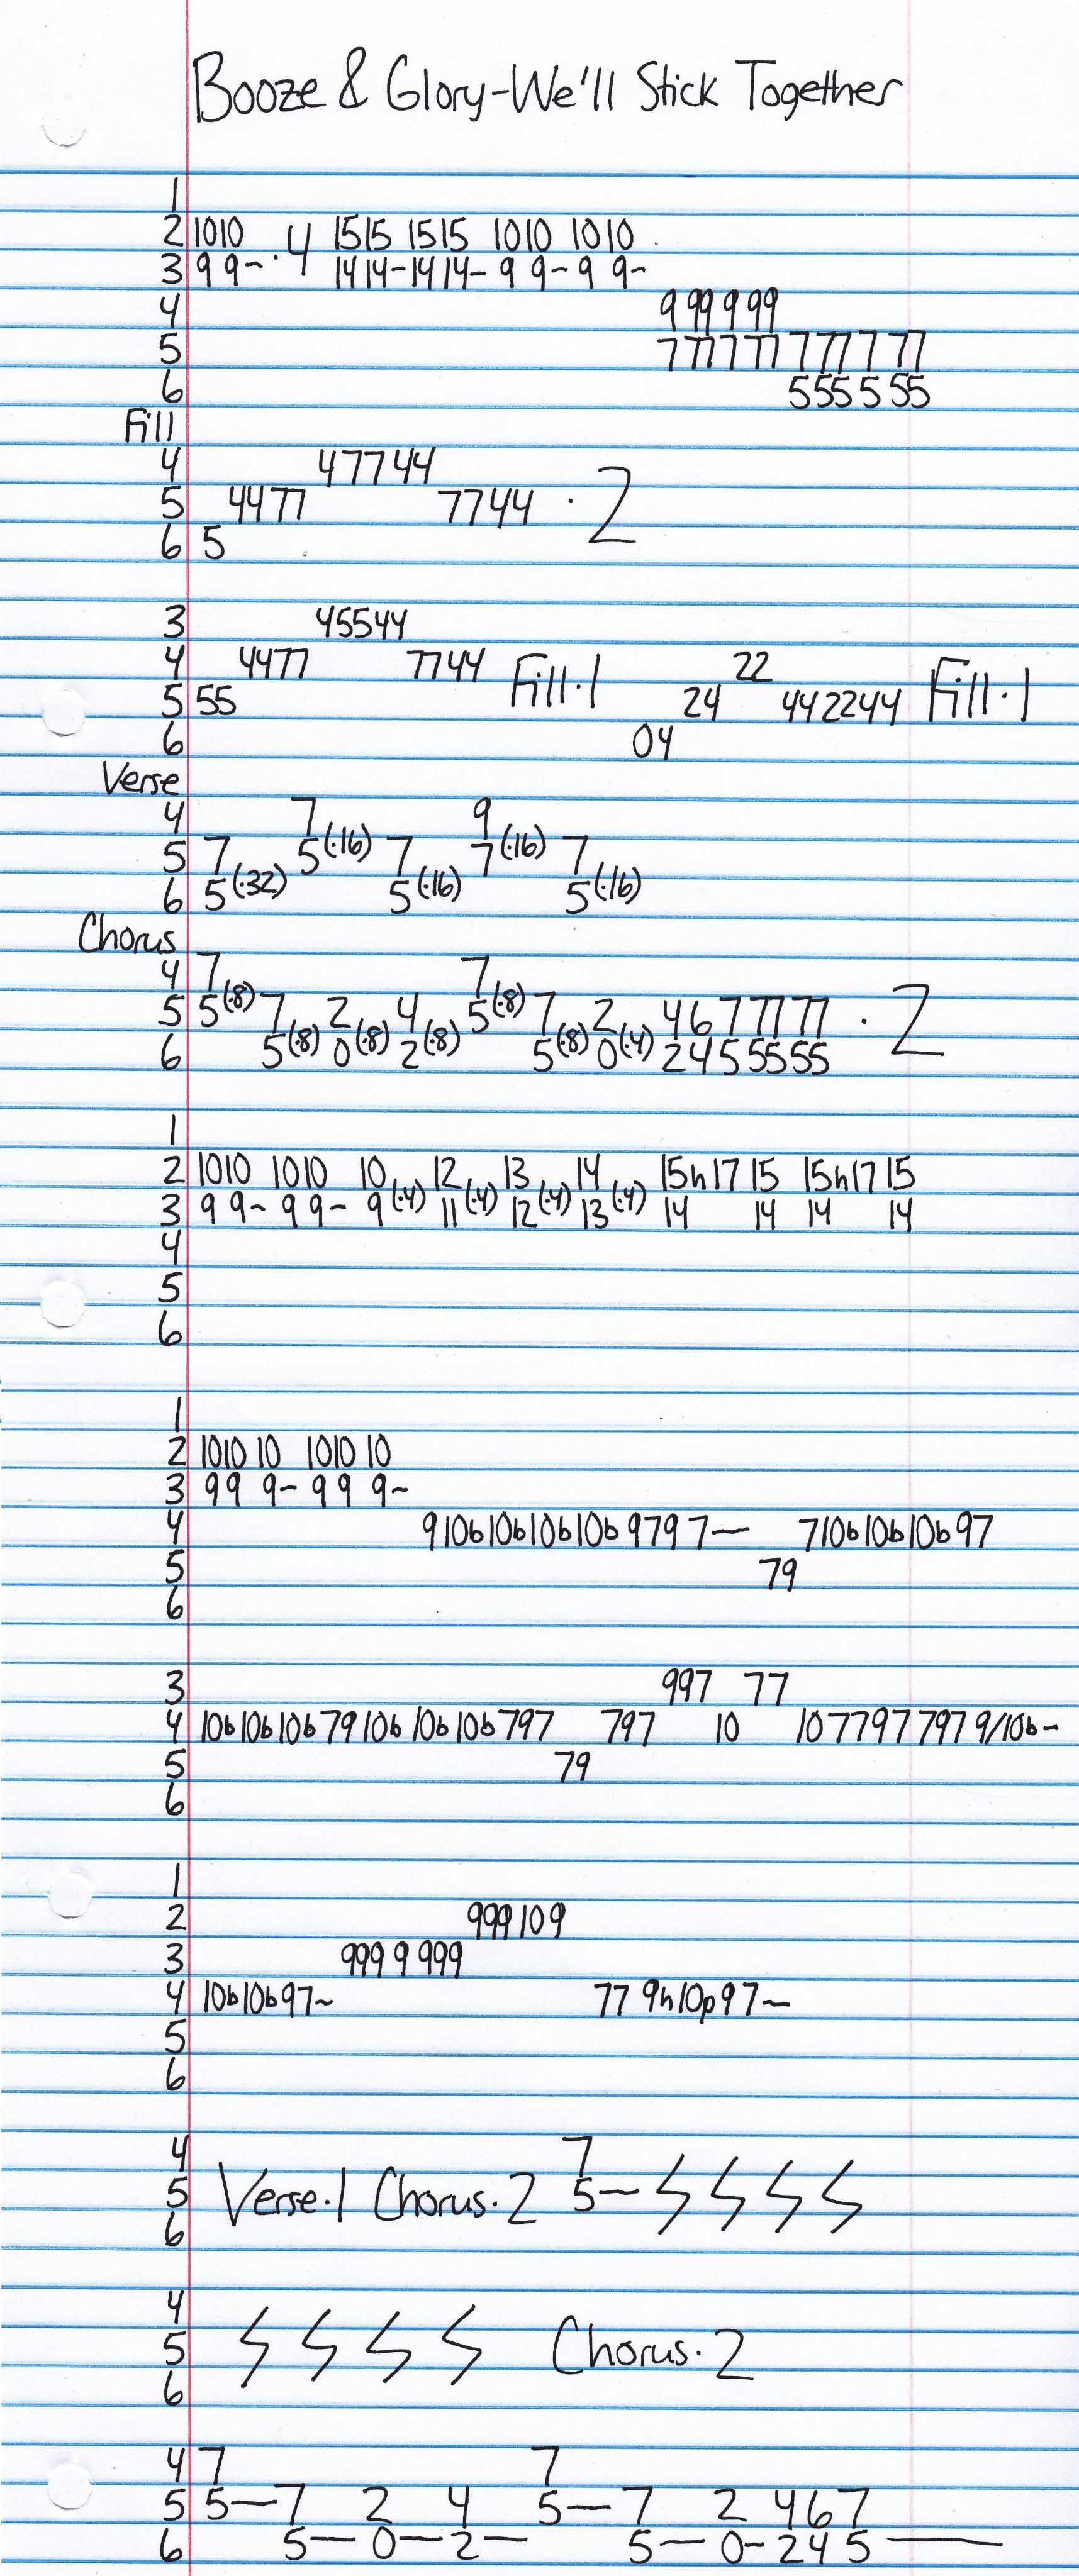 Booze & Glory-We'll Stick Together
1
2 1010 ·4 1515 1515 1010 1010
3 9 9~ 14 14~ 14 14~ 9 9~ 9 9~
4 9 99 9 99
5 7 77 7 77 777 7 77
6 555 5 55
Fill
4 47744
5 4477 7744 ·2
6 5
3 45544
4 4477 7744 Fill·1 22 Fill·1
5 55 24 442244
6 04
Verse
4 7 9
5 7 5(·16) 7 7(·16) 7
6 5(·32) 5(·16) 5(·16)
Chorus
4 7 7
5 5(·8) 7 2 4 5(·8) 7 2 4 6 7 77 77 ·2
6 5(·8) 0(·8) 2(·8) 5(·8) 0(·4) 2 4 5 55 55
1
2 1010 1010 10 12 13 14 15h17 15 15h17 15
3 9 9~ 9 9~ 9(·4) 11(·4) 12(·4) 13(·4) 14 14 14 14
4
5
6
1
2 1010 10 1010 10
3 99 9~ 99 9~
4 910b10b10b10b 9797~ 710b10b10b97
5 79
6
3 997 77
4 10b10b10b7910b10b10b797 797 10 1077977979/10b~
5 79
6
1
2 999109
3 999 9 999
4 10b10b97~ 77 9h10p97~
5
6
4 7
5 Verse·1 Chorus·2 5~
6
4
5 Chorus·2
6
4 7 7
5 5~7 2 4 5~7 2 467
6 5~0~2~ 5~0~245~